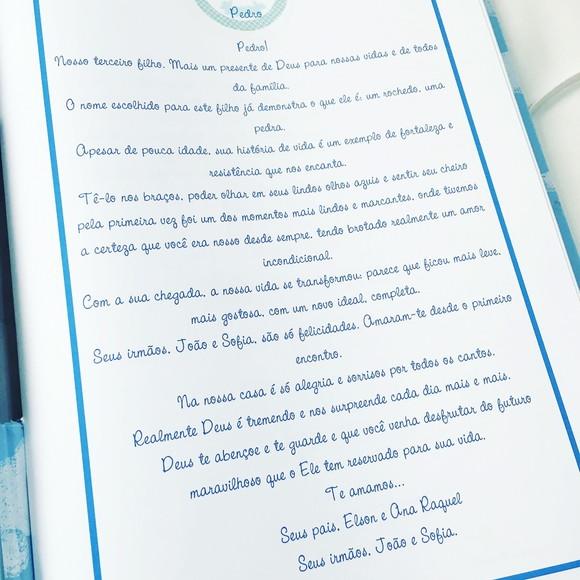 Pedro
Pedro!
Nosso terceiro filho. Mais um presente de Deus para nossas vidas e de todos
da família.
O nome escolhido para este filho já demonstra o que ele é: um rochedo, uma
pedra.
Apesar de pouca idade, sua história de vida é um exemplo de fortaleza e
resistência que nos encanta.
Tê-lo nos braços, poder olhar em seus lindos olhos azuis e sentir seu cheiro
pela primeira vez foi um dos momentos mais lindos e marcantes, onde tivemos
a certeza que você era nosso desde sempre, tendo brotado realmente um amor
incondicional.
Com a sua chegada, a nossa vida se transformou: parece que ficou mais leve,
mais gostosa, com um novo ideal, completa.
Seus irmãos, João e Sofia, são só felicidades. Amaram-te desde o primeiro
encontro.
Na nossa casa é só alegria e sorrisos por todos os cantos.
Realmente Deus é tremendo e nos surpreende cada dia mais e mais.
Deus te abençoe e te guarde e que você venha desfrutar do futuro
maravilhoso que o Ele tem reservado para sua vida.
Te amamos...
Seus pais, Elson e Ana Raquel
Seus irmãos, João e Sofia.